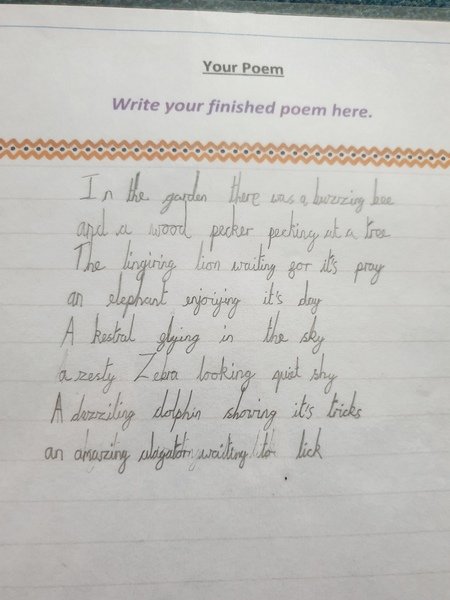 Your Poem
Write your finished poem here.
In the garden there was a buzzing bee
and a wood pecker pecking at a tree
The lingiring lion waiting for it's pray
an elephant enjoiying it's day
A kestral flying in the sky
a zesty Zebra looking quiet shy
A duzziling dolphin showing it's tricks
an amazing aligator waiting to lick